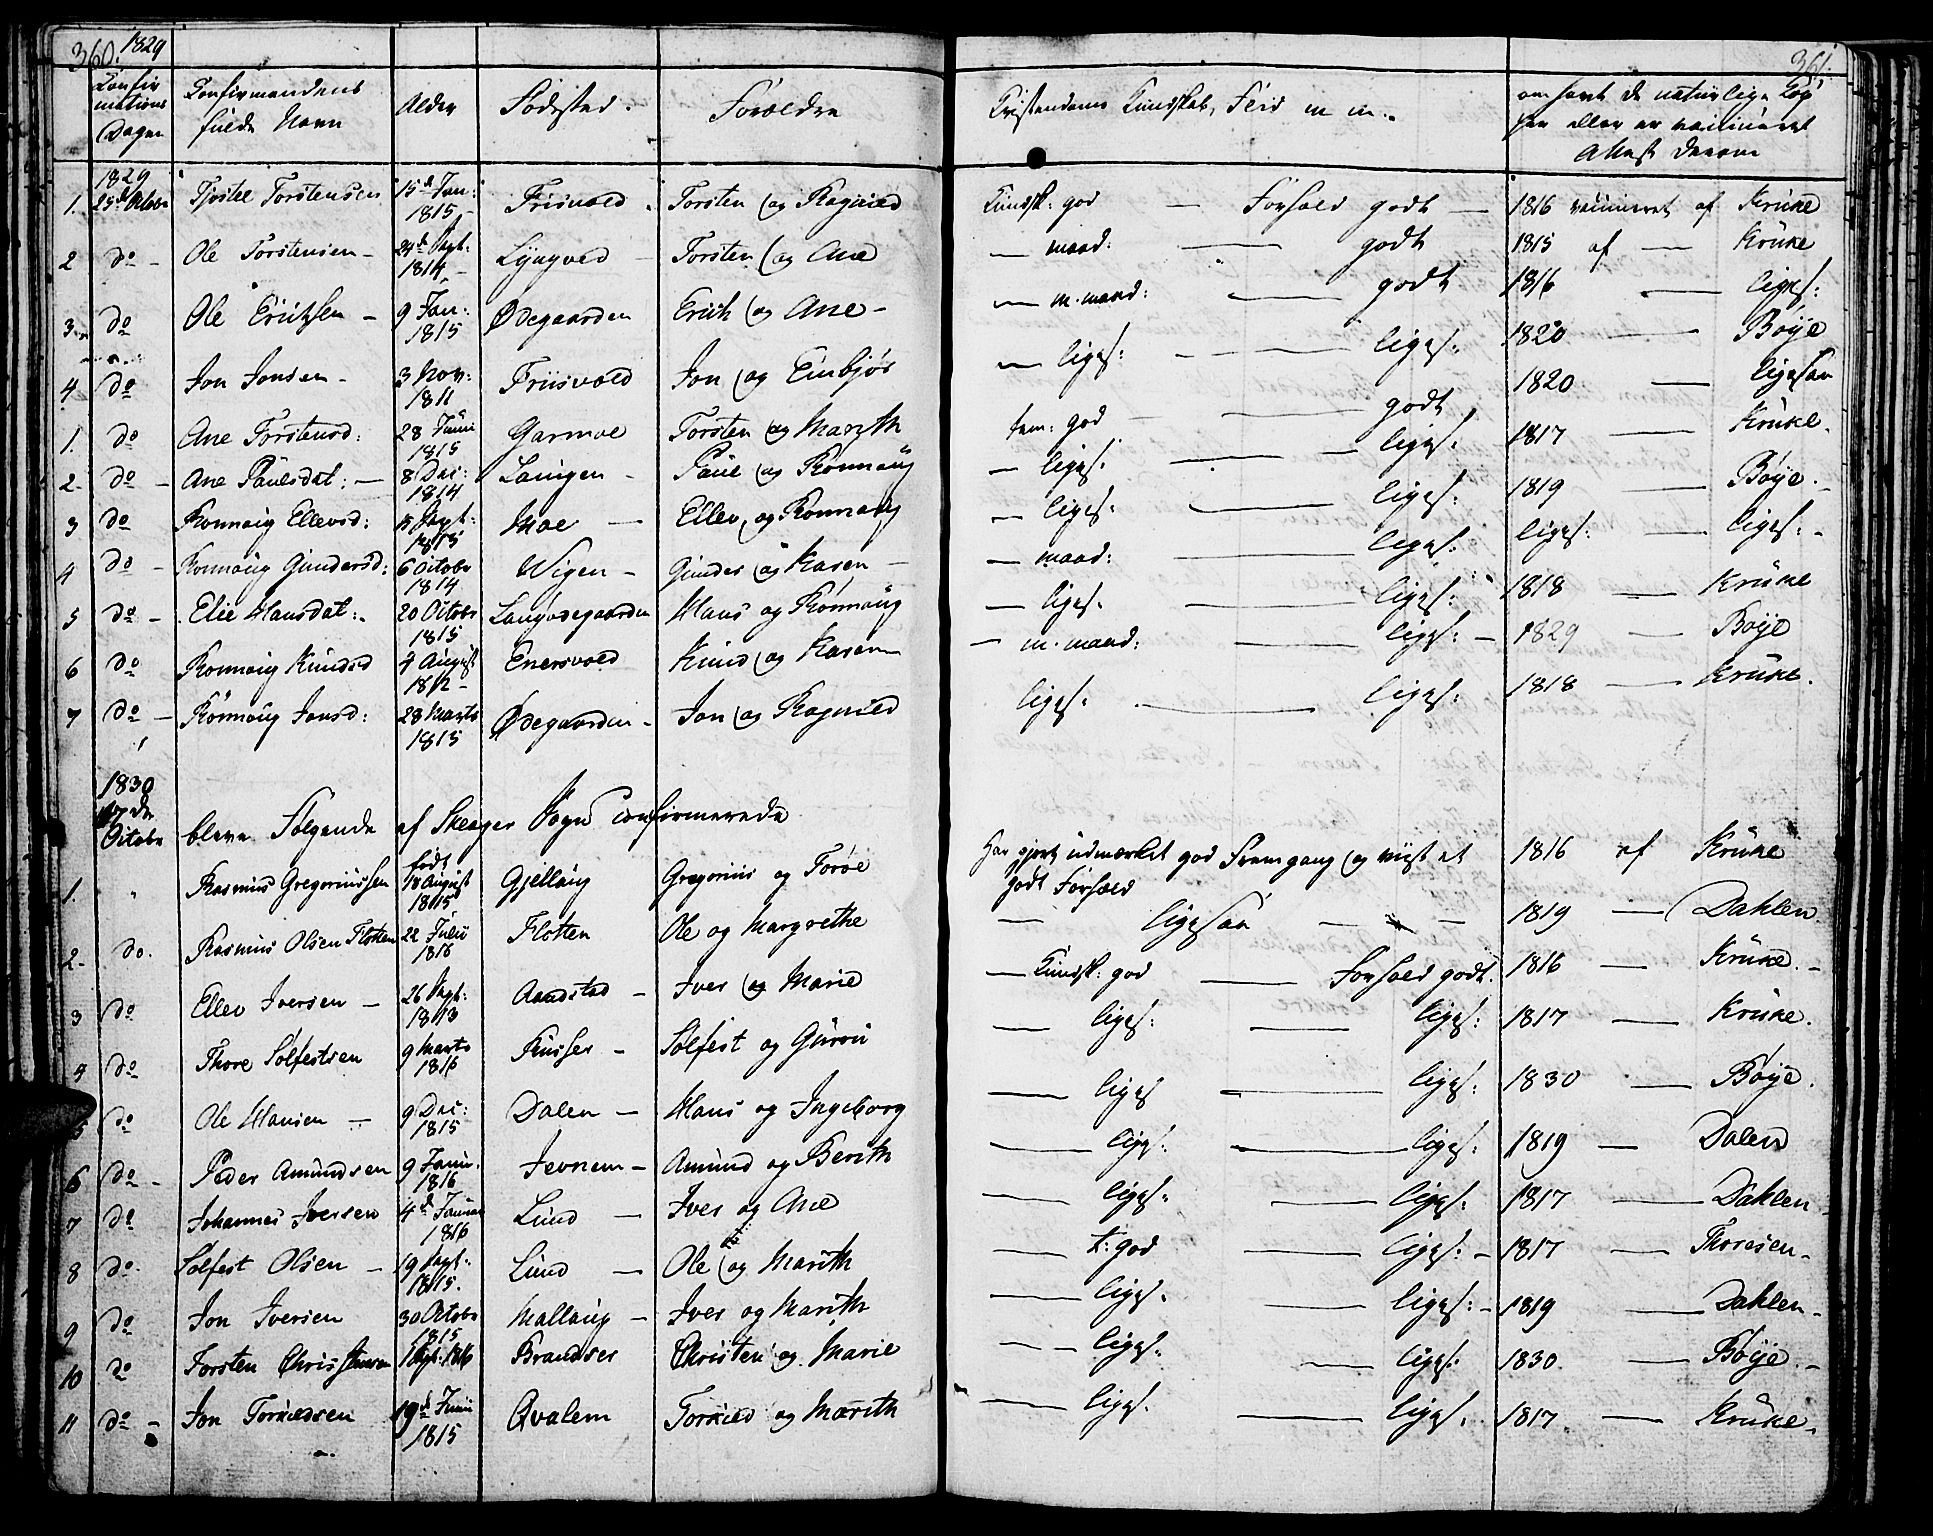 360. 1829
361.
Confir
mations
Dagen
Confirmandens
fulde Navn
Alder
Födested.
Forældre
Cristendoms Kundskab, Flid m m.
om havt de naturlige Kop
per eller er vaccineret
Attest derom
1829
1. 25d Octobr Tjostel Torstensen 15d Jan: 1815 Frisvold Torsten og Ragnild Kundsk: god — Forhold godt — 1816 vaccineret af Krüke
2 do - Ole Torstensen - 24d Sept: 1814 - Lyngved Torsten og Ane — maad: — godt 1815 af — Krüke
3. do Ole Erichsen - 9 Jan: 1815 Ødegaarden Erich og Ane - — m. maad: — godt 1816 — liges:
4 do Jon Jonsen - 3 Nov: 1811 Friisvold Jon og Embjør — liges: — liges: 1820 — Bøye
1. do Ane Torstensd: 28 Juni 1815 Garmoe Torsten og Marith tem: god — godt 1820 — ligesaa
2- do - Ane Paulsdat: - 8 Dec: 1814 Lanigen - Paul og Ronnoüg — liges: — liges: 1817 — Krüke.
3 do Ronnoüg Ellevsd: Sept: 1815 Moe — Ellev og Ronnoüg — liges: — liges: 1819 — Bøye -
4 do - Ronnoüg Gundersd: 6 Octobr 1814 Wigen - Gunder og Karen — maad: — liges: liges: — liges: -
5 do - Elie Hansdat: - 20 Octobr 1815 Langødegaarden Hans og Rönnoüg — liges. — liges: 1818 — Krüke
6 do Ronnoüg Knudsd 4 August 1812 - Enersvold Knud og Karen — m. maad: — liges: - 1829 — Bøye
7 do — Rönnoüg Jonsd: 28 Marts 1815 Ødegaarden - Jon og Ragnild liges: — liges: 1818 — Krüke.
1830
17 de
Octobr bleve Følgende af Skeager Sogn confirmerede
1. " Rasmus Gregoriussen født 18 August 1815 Gjellaug Gregorius og Torøe Har gjort udmærket god Fremgang og viist et
godt Forhold 1816 af Krüke
2- do. Rasmus Olsen Flotten 22 Julii 1816 Flotten Ole og Margrethe — ligesaa — — 1819 — Dahlen
3 do Ellev Iversen — 26 Sept: 1813 Aandstad - Iver og Marie — Kundsk: god — Forhold godt. 1816 — Krüke. -
4 do Thore Solfestsen 9 Marts 1816 Rusler - Solfest og Gürou — liges: — liges: 1817 — Krüke.
5 do Ole Hansen — 9 Dec: 1815 Dalen — Hans og Ingeborg — liges — liges: 1830 — Bøye.
6 do - Peder Amundsen 9 Janu. 1816 Jevnem — Amund og Berith — liges: — liges: 1819 — Dalen
7 do Johannes Iversen 4d Januar 1816 Lund — Iver og Ane — liges: — liges: 1817 — Dahlen -
8 do. Solfest Olsen — 19 Sept: 1815. Lund — Ole og Marith — k: god — liges: - 1817 — Thoresen -
9 do Jon Iversen 30 Octobr 1815 Mallaug - Iver og Marith — liges. — liges: - 1819 — Dahlen -
10 do Torsten Christensen 1 Sept: 1816 Brandser Christen og Marie — liges: — liges: 1830. — Bøye. -
11 do - Jon Torkildsen 19d Junii 1815 Qvalem Torkild og Marith — liges. — liges. 1817. — Krüke -